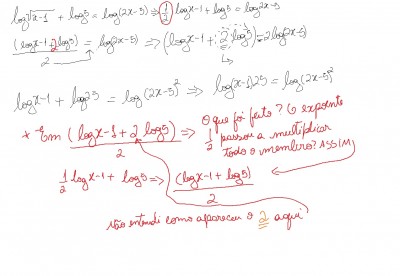 log√x-1 + log5 = log(2x-5) ⇒ 1/2 logx-1 + log5 = log2x-5
(logx-1 + 2log5)/2 = log(2x-5) ⇒ (logx-1 + 2 log5) = 2log(2x-5)
logx-1 + log25 = log(2x-5)² ⇒ log(x-1)25 = log(2x-5)²
* Em (logx-1 + 2 log5)/2 ⇒ O que foi feito? O expoente
1/2 passou a multiplicar
todo o membro? ASSIM
1/2 logx-1 + log5 ⇒ (logx-1 + log5)/2
não entendi como apareceu o 2 aqui